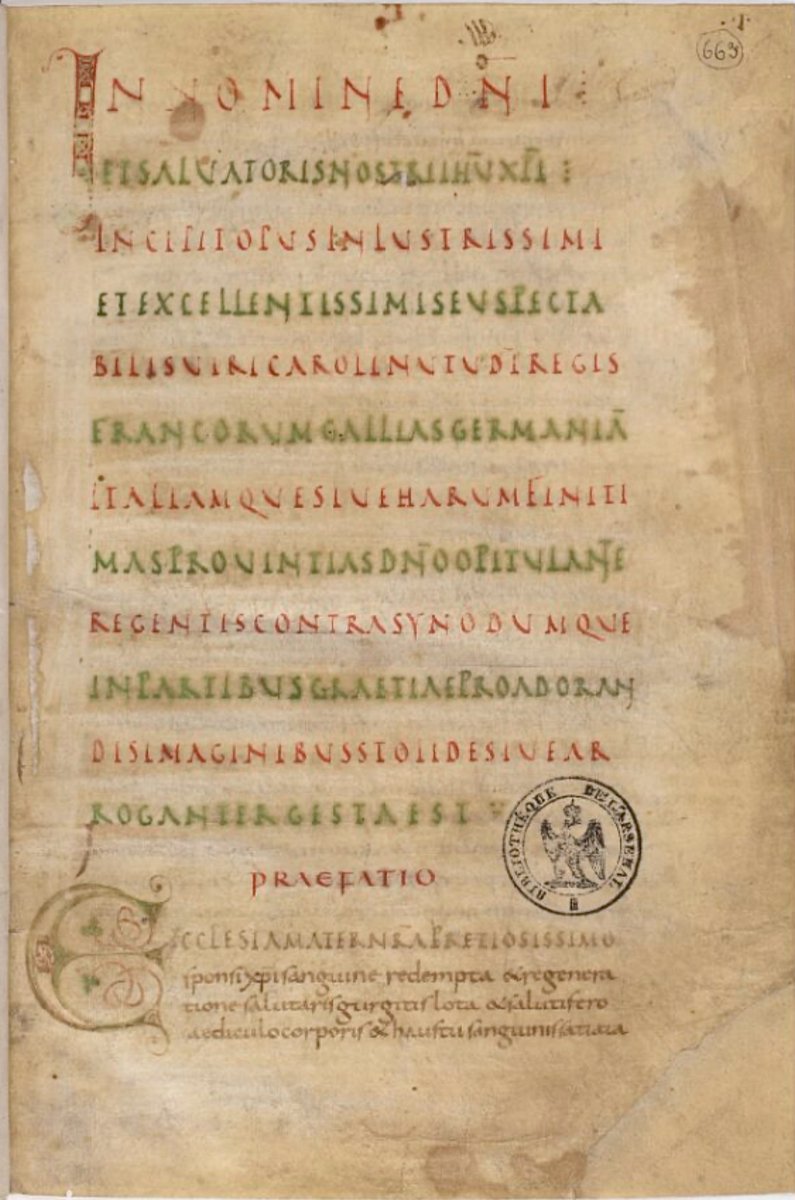 663
IN NOMINE DN̄I
ET SALVATORIS NOSTRI IHŪ XP̄I
INCIPIT OPUS INLUSTRISSIMI
ET EXCELLENTISSIMI SEU SPECTA
BILIS UIRI CAROLI NUTU DĪ REGIS
FRANCORUM GALLIAS GERMANIĀ
ITALIAMQUE SIUE HARUM FINITI
MAS PROUINTIAS DN̄O OPITULANT̄E
REGENTIS CONTRA SYNODUM QUE
IN PARTIBUS GRAETIAE PRO ADORAN
DIS IMAGINIBUS STOLIDE SIUE AR
ROGANTER GESTA EST
PRAEFATIO
ECCLESIA MATER NR̄A PRETIOSISSIMO
sponsi xp̄i sanguine redempta & regenera
tione salutaris gurgitis lota & salutifero
aediculo corporis & haustu sanguinis satiata
BIBLIOTHÈQUE DE L'ARSENAL